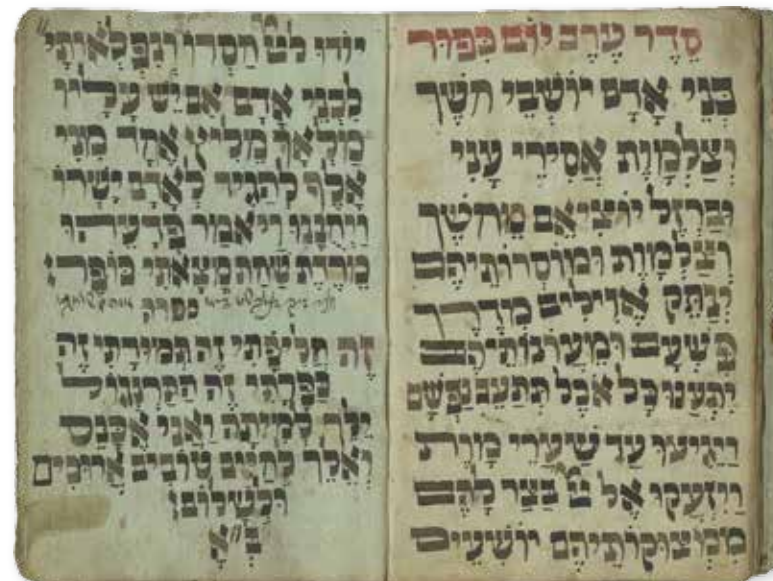 סֵדֶר עֶרֶב יוֹם כִּפּוּר
בְּנֵי אָדָם יוֹשְׁבֵי חֹשֶׁךְ
וְצַלְמָוֶת אֲסִירֵי עֳנִי
וּבַרְזֶל יוֹצִיאֵם מֵחֹשֶׁךְ
וְצַלְמָוֶת וּמוֹסְרוֹתֵיהֶם
יְנַתֵּק אֱוִילִים מִדֶּרֶךְ
פִּשְׁעָם וּמֵעֲוֹנוֹתֵיהֶם
יִתְעַנּוּ כָּל אֹכֶל תְּתַעֵב נַפְשָׁם
וַיַּגִּיעוּ עַד שַׁעֲרֵי מָוֶת
וַיִּזְעֲקוּ אֶל בַּצַּר לָהֶם
מִמְּצוּקוֹתֵיהֶם יוֹשִׁיעֵם
יוֹדוּ חַסְדּוֹ וְנִפְלְאוֹתָיו
לִבְנֵי אָדָם אִם יֵשׁ עָלָיו
מַלְאָךְ מֵלִיץ אֶחָד מִנִּי
אָלֶף לְהַגִּיד לְאָדָם יָשְׁרוֹ
וַיְחֻנֶּנּוּ וַיֹּאמֶר פְּדָעֵהוּ
מֵרֶדֶת שַׁחַת מָצָאתִי כוֹפֶר׃
זֶה חֲלִיפָתִי זֶה תְּמוּרָתִי זֶה
כַּפָּרָתִי זֶה הַתַּרְנְגוֹל
יֵלֵךְ לְמִיתָה וַאֲנִי אֶכָּנֵס
וְאֵלֵךְ לְחַיִּים טוֹבִים אֲרוּכִּים
וּלְשָׁלוֹם׃